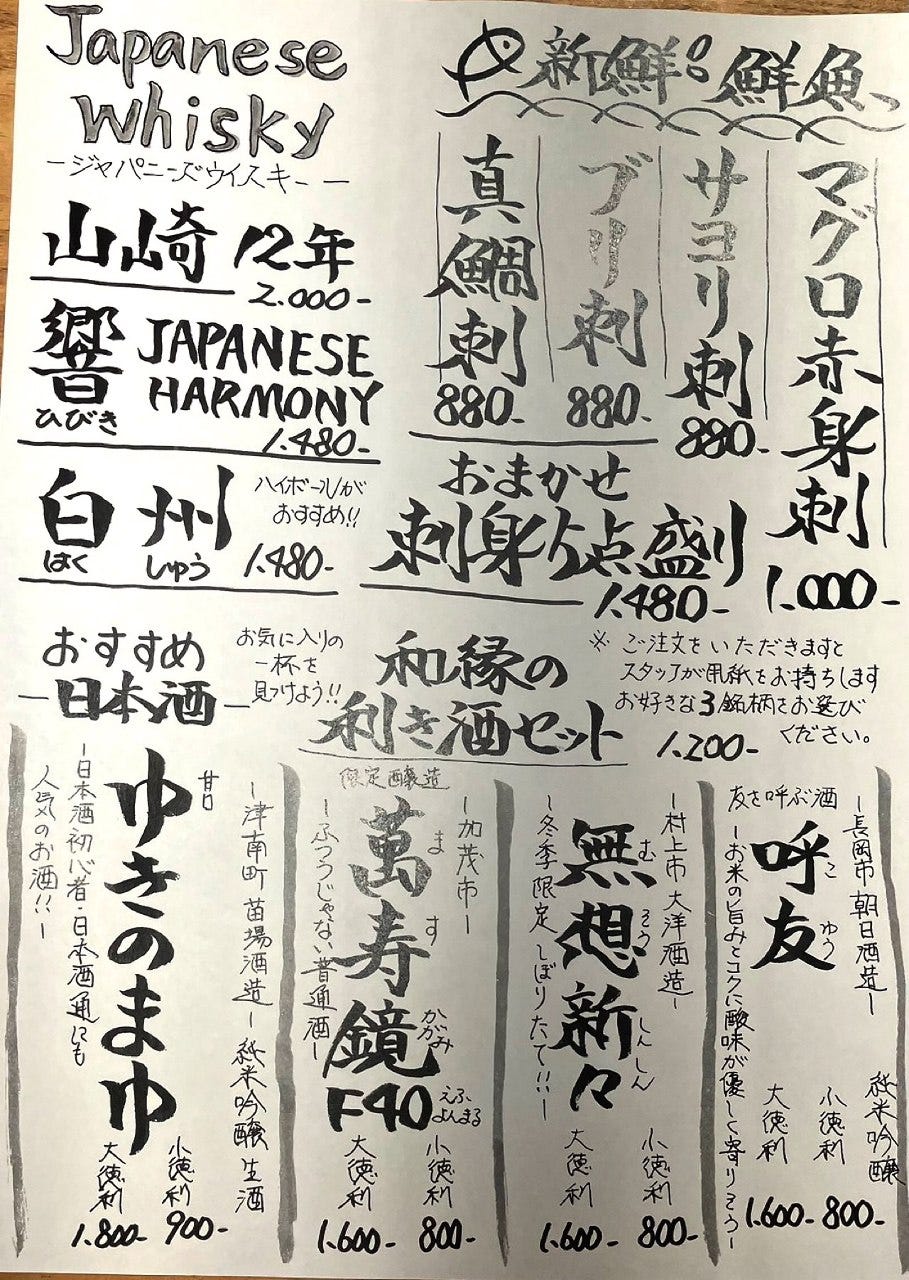 Japanese
Whisky
－ジャパニーズウイスキー－
山崎 12年
2.000-
響 JAPANESE
HARMONY
ひびき
1.480-
白州
はく しゅう
ハイボールが
おすすめ!!
1.480-
新鮮!! 鮮魚
マグロ赤身刺
1.000-
サヨリ刺
880-
ブリ刺
880-
真鯛刺
880-
おまかせ
刺身5点盛り
1.480-
おすすめ
－日本酒－
お気に入りの
一杯を
見つけよう!!
和縁の
利き酒セット
※ご注文をいただきますと
スタッフが用紙をお持ちします
お好きな3銘柄をお選び
ください。
1.200-
－長岡市 朝日酒造－
純米吟醸
友を呼ぶ酒
呼友
こ ゆう
－お米の旨みとコクに酸味が優しく寄りそう－
小徳利
800-
大徳利
1.600-
－村上市 大洋酒造－
無想新々
む そう しんしん
－冬季限定 しぼりたて!!－
小徳利
800-
大徳利
1.600-
限定醸造
－加茂市－
萬寿鏡
ま す かがみ
F40
えふ
よんまる
－ふつうじゃない普通酒－
小徳利
800-
大徳利
1.600-
－津南町 苗場酒造－ 純米吟醸 生酒
甘口
ゆきのまゆ
－日本酒初心者・日本酒通にも
人気のお酒!!－
小徳利
900-
大徳利
1.800-